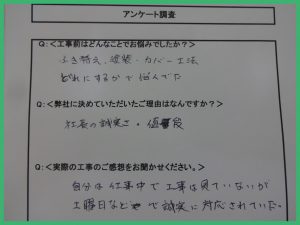 アンケート調査
Q:<工事前はどんなことでお悩みでしたか?>
ふき替え、塗装・カバー工法
どれにするかで悩んでた
Q:<弊社に決めていただいたご理由はなんですか?>
社長の誠実さ・値段
Q:<実際の工事のご感想をお聞かせください。>
自分は仕事中で工事は見ていないが
土曜日など で誠実に対応されていた。